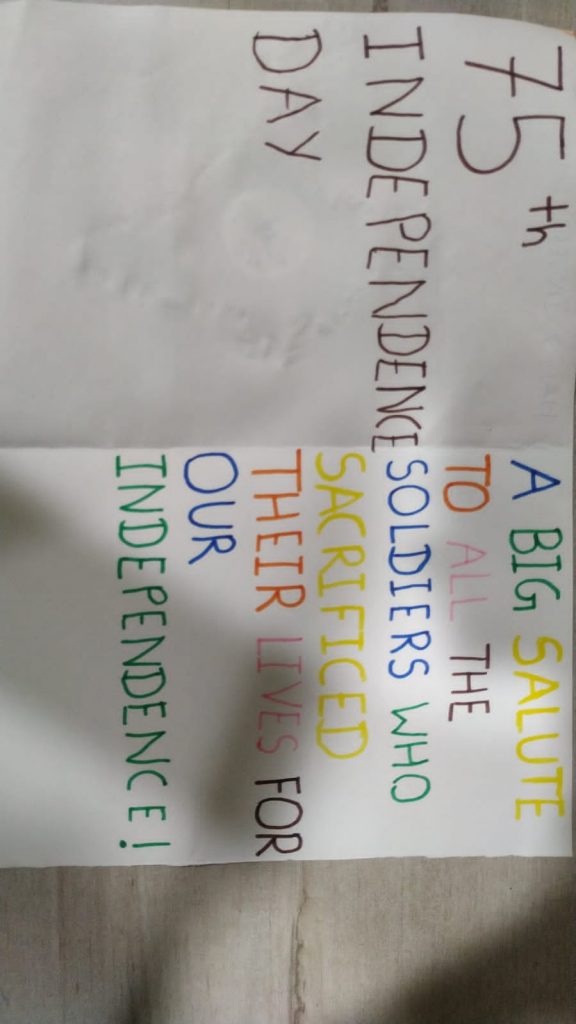 75th
INDEPENDENCE
DAY
A BIG SALUTE
TO ALL THE
SOLDIERS WHO
SACRIFICED
THEIR LIVES FOR
OUR
INDEPENDENCE!